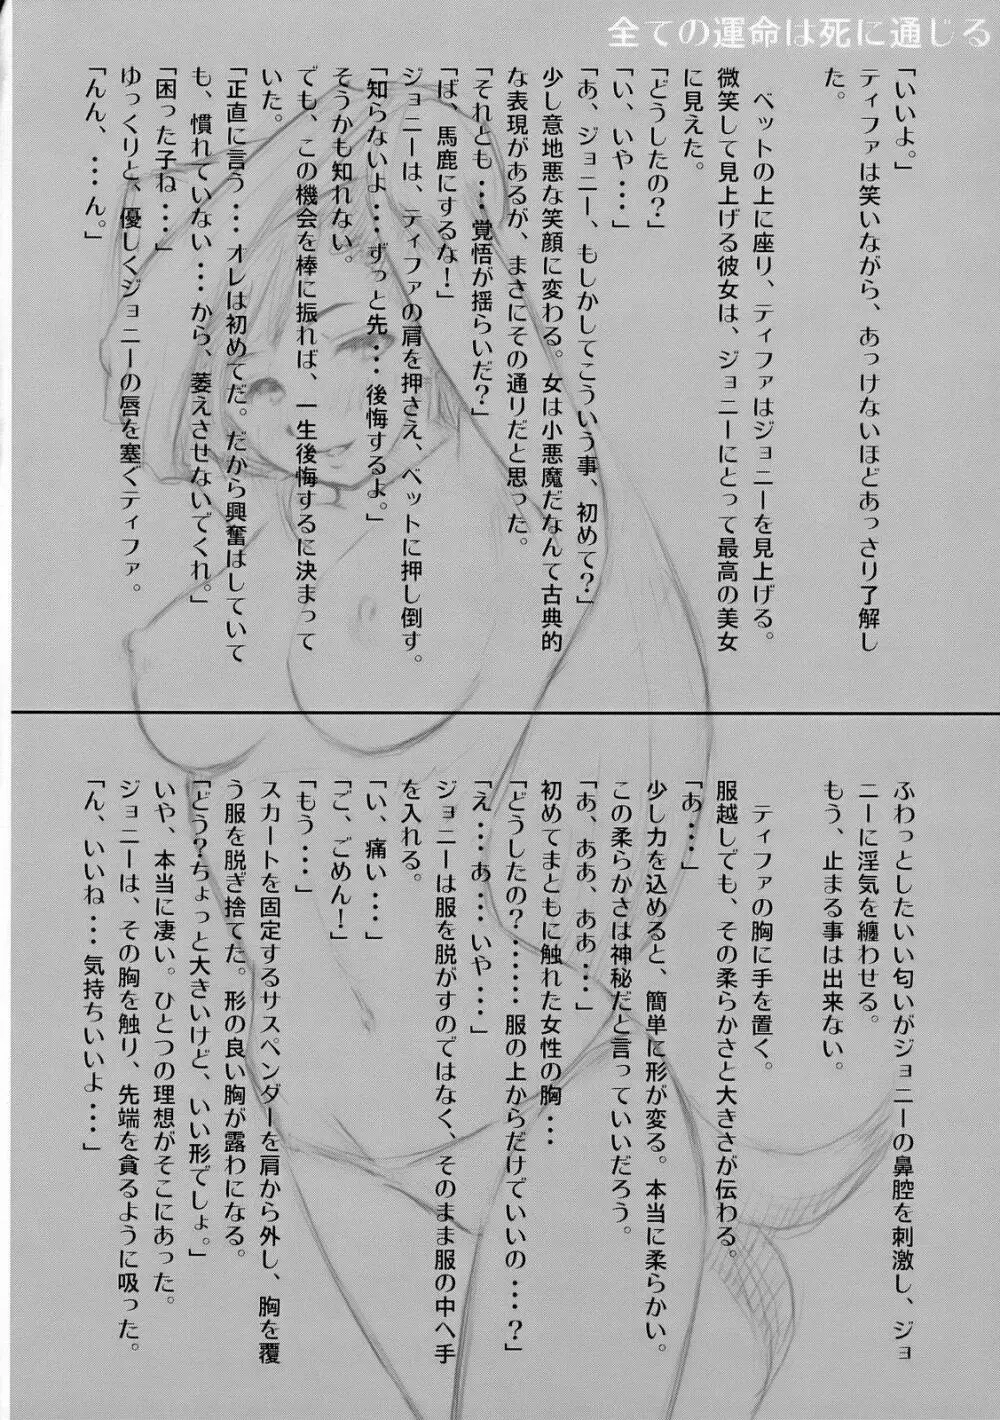 全ての運命は死に通じる
「いいよ。」
ティファは笑いながら、あっけないほどあっさり了解し
た。
ベットの上に座り、ティファはジョニーを見上げる。
微笑して見上げる彼女は、ジョニーにとって最高の美女
に見えた。
「どうしたの？」
「い、いや・・・」
「あ、ジョニー、もしかしてこういう事、初めて？」
少し意地悪な笑顔に変わる。女は小悪魔だなんて古典的
な表現があるが、まさにその通りだと思った。
「それとも・・・覚悟が揺らいだ？」
「ば、馬鹿にするな！」
ジョニーは、ティファの肩を押さえ、ベットに押し倒す。
「知らないよ・・・ずっと先・・・後悔するよ。」
そうかも知れない。
でも、この機会を棒に振れば、一生後悔するに決まって
いた。
「正直に言う・・・オレは初めてだ。だから興奮はしていて
も、慣れていない・・・から、萎えさせないでくれ。」
「困った子ね・・・」
ゆっくりと、優しくジョニーの唇を塞ぐティファ。
「んん、・・・ん。」
ふわっとしたいい匂いがジョニーの鼻腔を刺激し、ジョ
ニーに淫気を纏わせる。
もう、止まる事は出来ない。
ティファの胸に手を置く。
服越しでも、その柔らかさと大きさが伝わる。
「あ・・・」
少し力を込めると、簡単に形が変る。本当に柔らかい。
この柔らかさは神秘だと言っていいだろう。
「あ、ああ、ああ・・・」
初めてまともに触れた女性の胸・・・
「どうしたの？・・・・・・服の上からだけでいいの・・・？」
「え・・・あ・・・いや・・・」
ジョニーは服を脱がすのではなく、そのまま服の中へ手
を入れる。
「い、痛い・・・」
「ご、ごめん！」
「もう・・・」
スカートを固定するサスペンダーを肩から外し、胸を覆
う服を脱ぎ捨てた。形の良い胸が露わになる。
「どう？ちょっと大きいけど、いい形でしょ。」
いや、本当に凄い。ひとつの理想がそこにあった。
ジョニーは、その胸を触り、先端を貪るように吸った。
「ん、いいね・・・気持ちいいよ・・・」